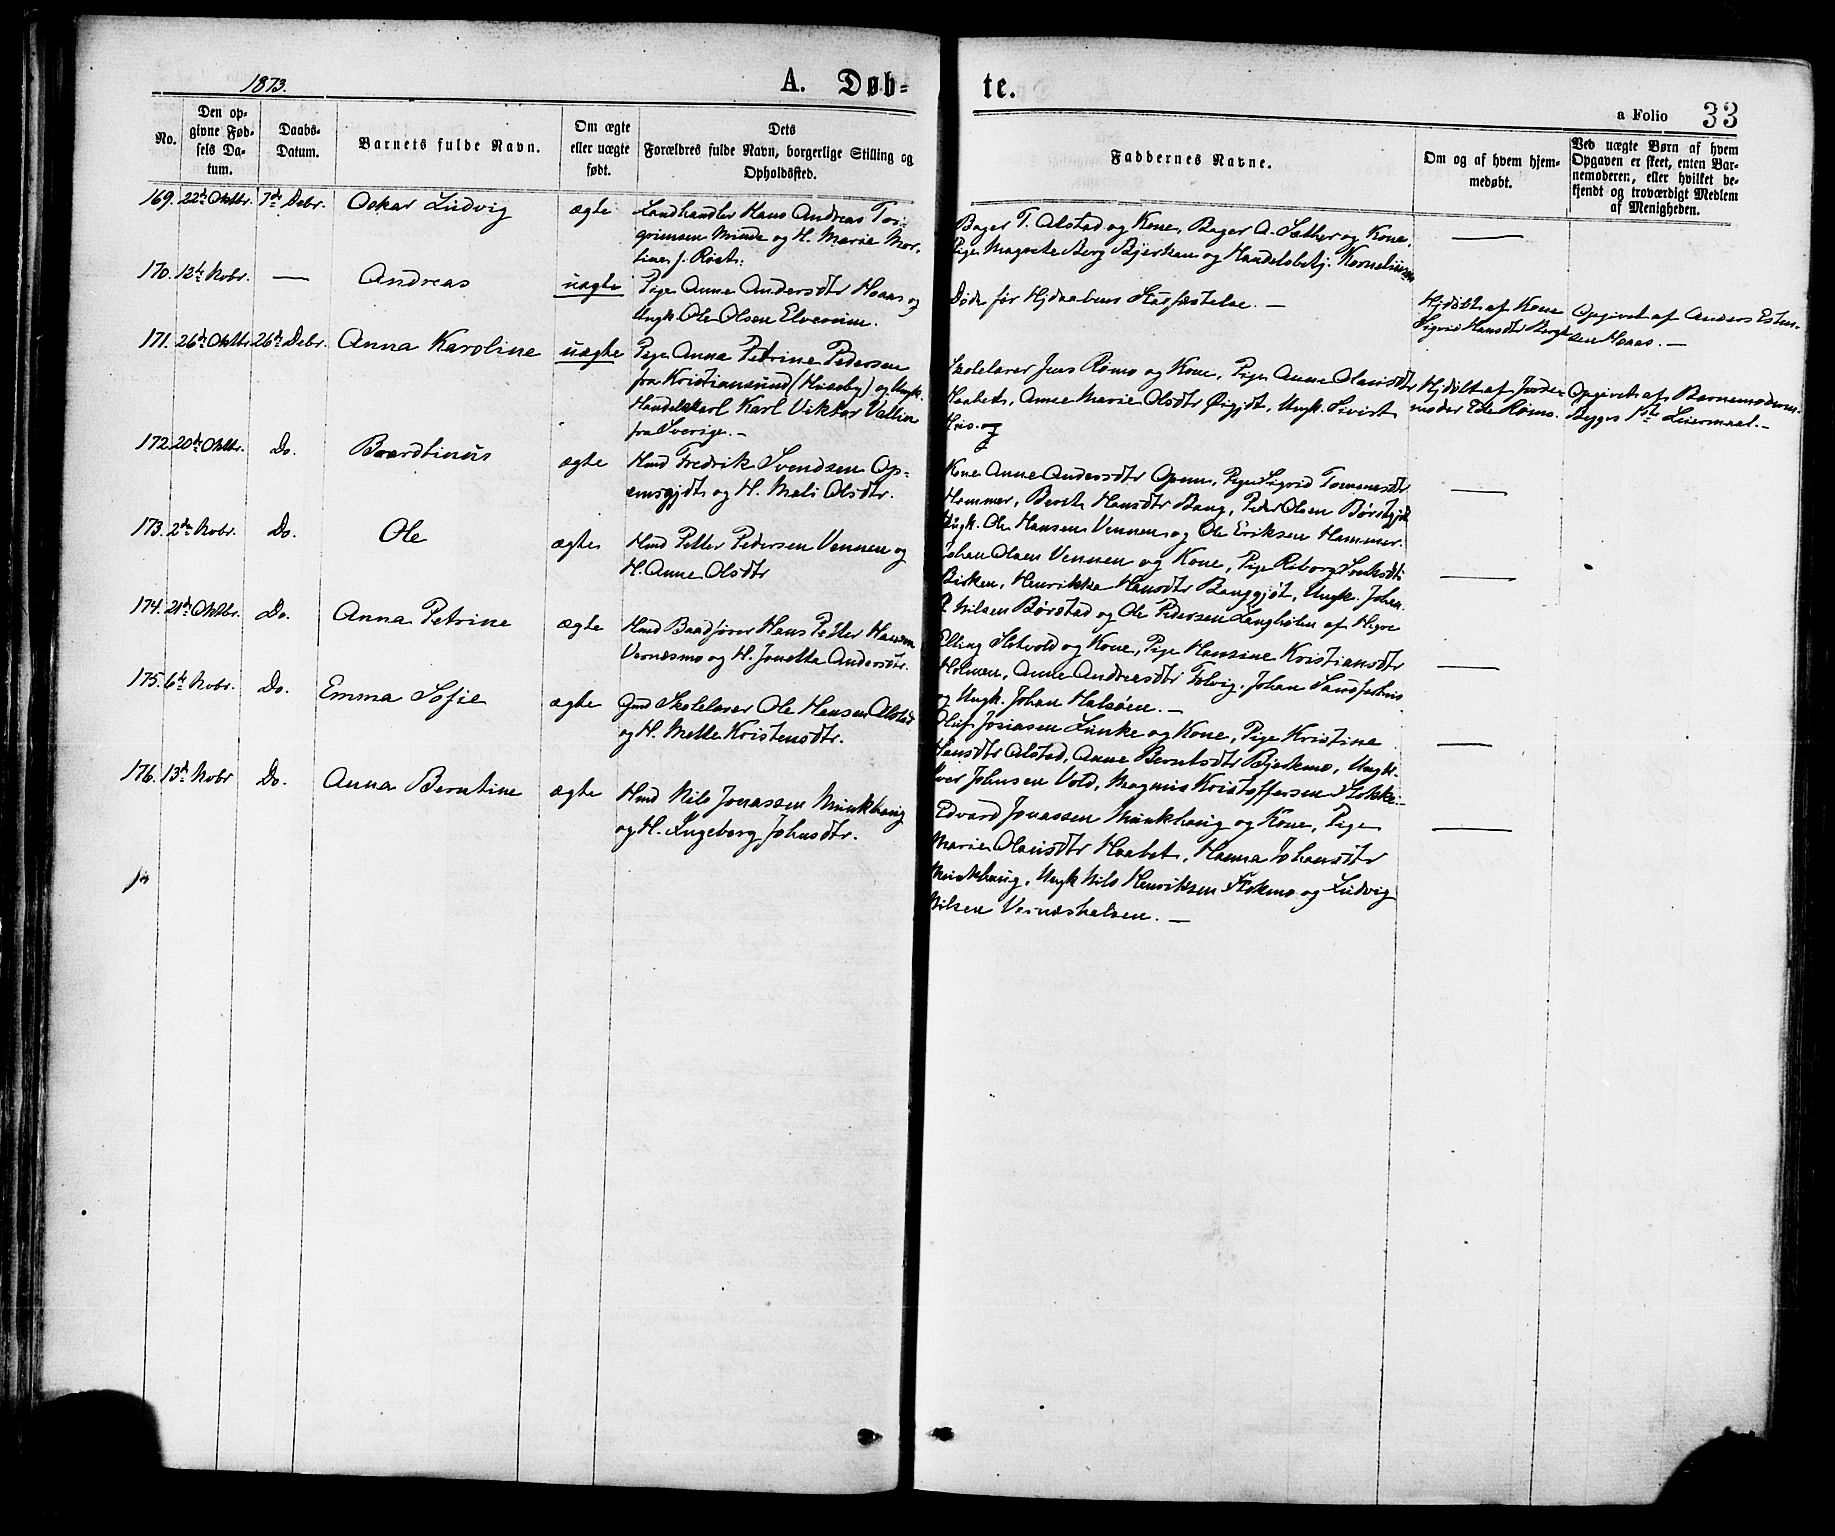 1873.
A. Døb-
te.
a Folio 33
No.
Den op-
givne Fød-
sels Da-
tum.
Daabs-
Datum.
Barnets fulde Navn.
Om ægte
eller uægte
født.
Dets
Forældres fulde Navn, borgerlige Stilling og
Opholdssted.
Faddernes Navne.
Om og af hvem hjem-
medøbt.
Ved uægte Børn af hvem
Opgaven er skeet, enten Bar-
nemoderen, eller hvilket be-
kjendt og troværdigt Medlem
af Menigheden.
169. 22de Oktbr. 7de Debr. Oskar Ludvig ægte
Landhandler Hans Andreas Tor-
grimsen Minde og H. Marie Mar-
tine f. Røst.
Bager T. Alstad og Kone, Bager A. Sæther og Kone,
Pige Magrete Berg Bjerkan og Handelsbetj. Korneliusen
170. 12te Novbr. — Andreas uægte
Pige Anne Andersdtr Haaas og
Ungk. Ole Olsen Elverum.
Døde før Hjdaabens Stadfæstelse. —
Hjdøbt af Kone
Sigrid Hansdtr Berg
Opgivet af Anders Esten-
sen Haaas. —
171. 26de Oktbr. 26de Debr. Anna Karoline uægte
Pige Anna Petrine Pedersen
fra Kristiansund (Huseby) og Ungk.
Handelskarl Karl Viktor Vallin
fra Sverige. —
Skolelærer Jens Rømo og Kone, Pige Anne Olausdtr
Haabet, Anne Marie Olsdtr Øigjdt, Ungk. Sivert
Hjdøbt af Jorde-
moder Ede Rømo.
Opgivet af Barnemoderen.
Begges 1ste Leiermaal. —
172. 20de Oktbr. Do. Baardtinus ægte
Hmd Fredrik Svendsen Op-
emsgjdt og H. Mali Olsdtr.
Kone Anne Andersdtr Opem, Pige Sigrid Tomensdtr
Hammer, Berit Hansdtr Bang, Peder Olsen Børstgjdt
Ungk. Ole Hansen Vennen og Ole Eriksen Hammer.
173. 2de Novbr. Do. Ole ægte
Hmd Petter Pedersen Vennen og
H. Anne Olsdtr
Johan Olsen Vennen og Kone, Pige
Birken, Henrikke Hansdtr Banggjdt, Ungk. Johan
P. Nilsen Børstad og Ole Pedersen Langholen af Hegre
174. 21de Oktbr. Do. Anna Petrine ægte
Hmd Baadfører Hans Petter Hansen
Vernesmo og H. Jonetta Andersdtr.
Elling Slotvold og Kone, Pige Hansine Kristiansdtr
Holmen, Anne Andreasdtr Tolvig, Johan
og Ungk. Johan Halsøen. —
175. 6te Novbr. Do. Emma Sofie ægte
Gmd Skolelærer Ole Hansen Alstad
og H. Mette Kristensdtr.
Oluf Josiasen Lunke og Kone, Pige Kristine
Hansdtr Alstad, Anne Berntsdtr Bjerkmo, Ungk.
Iver Johnsen Vold, Magnus Kristoffersen Stokke-
176. 13de Novbr Do. Anna Berntine ægte
Hmd Nils Jonassen Munkhaug
og H. Ingeborg Johnsdtr.
Edvard Jonassen Munkhaug og Kone, Pige
Marie Olausdtr Haabet, Hanna Johansdtr
Munkhaug, Ungk Nils Henriksen Stokmo og Ludvig
Nilsen Verneshalsen. —